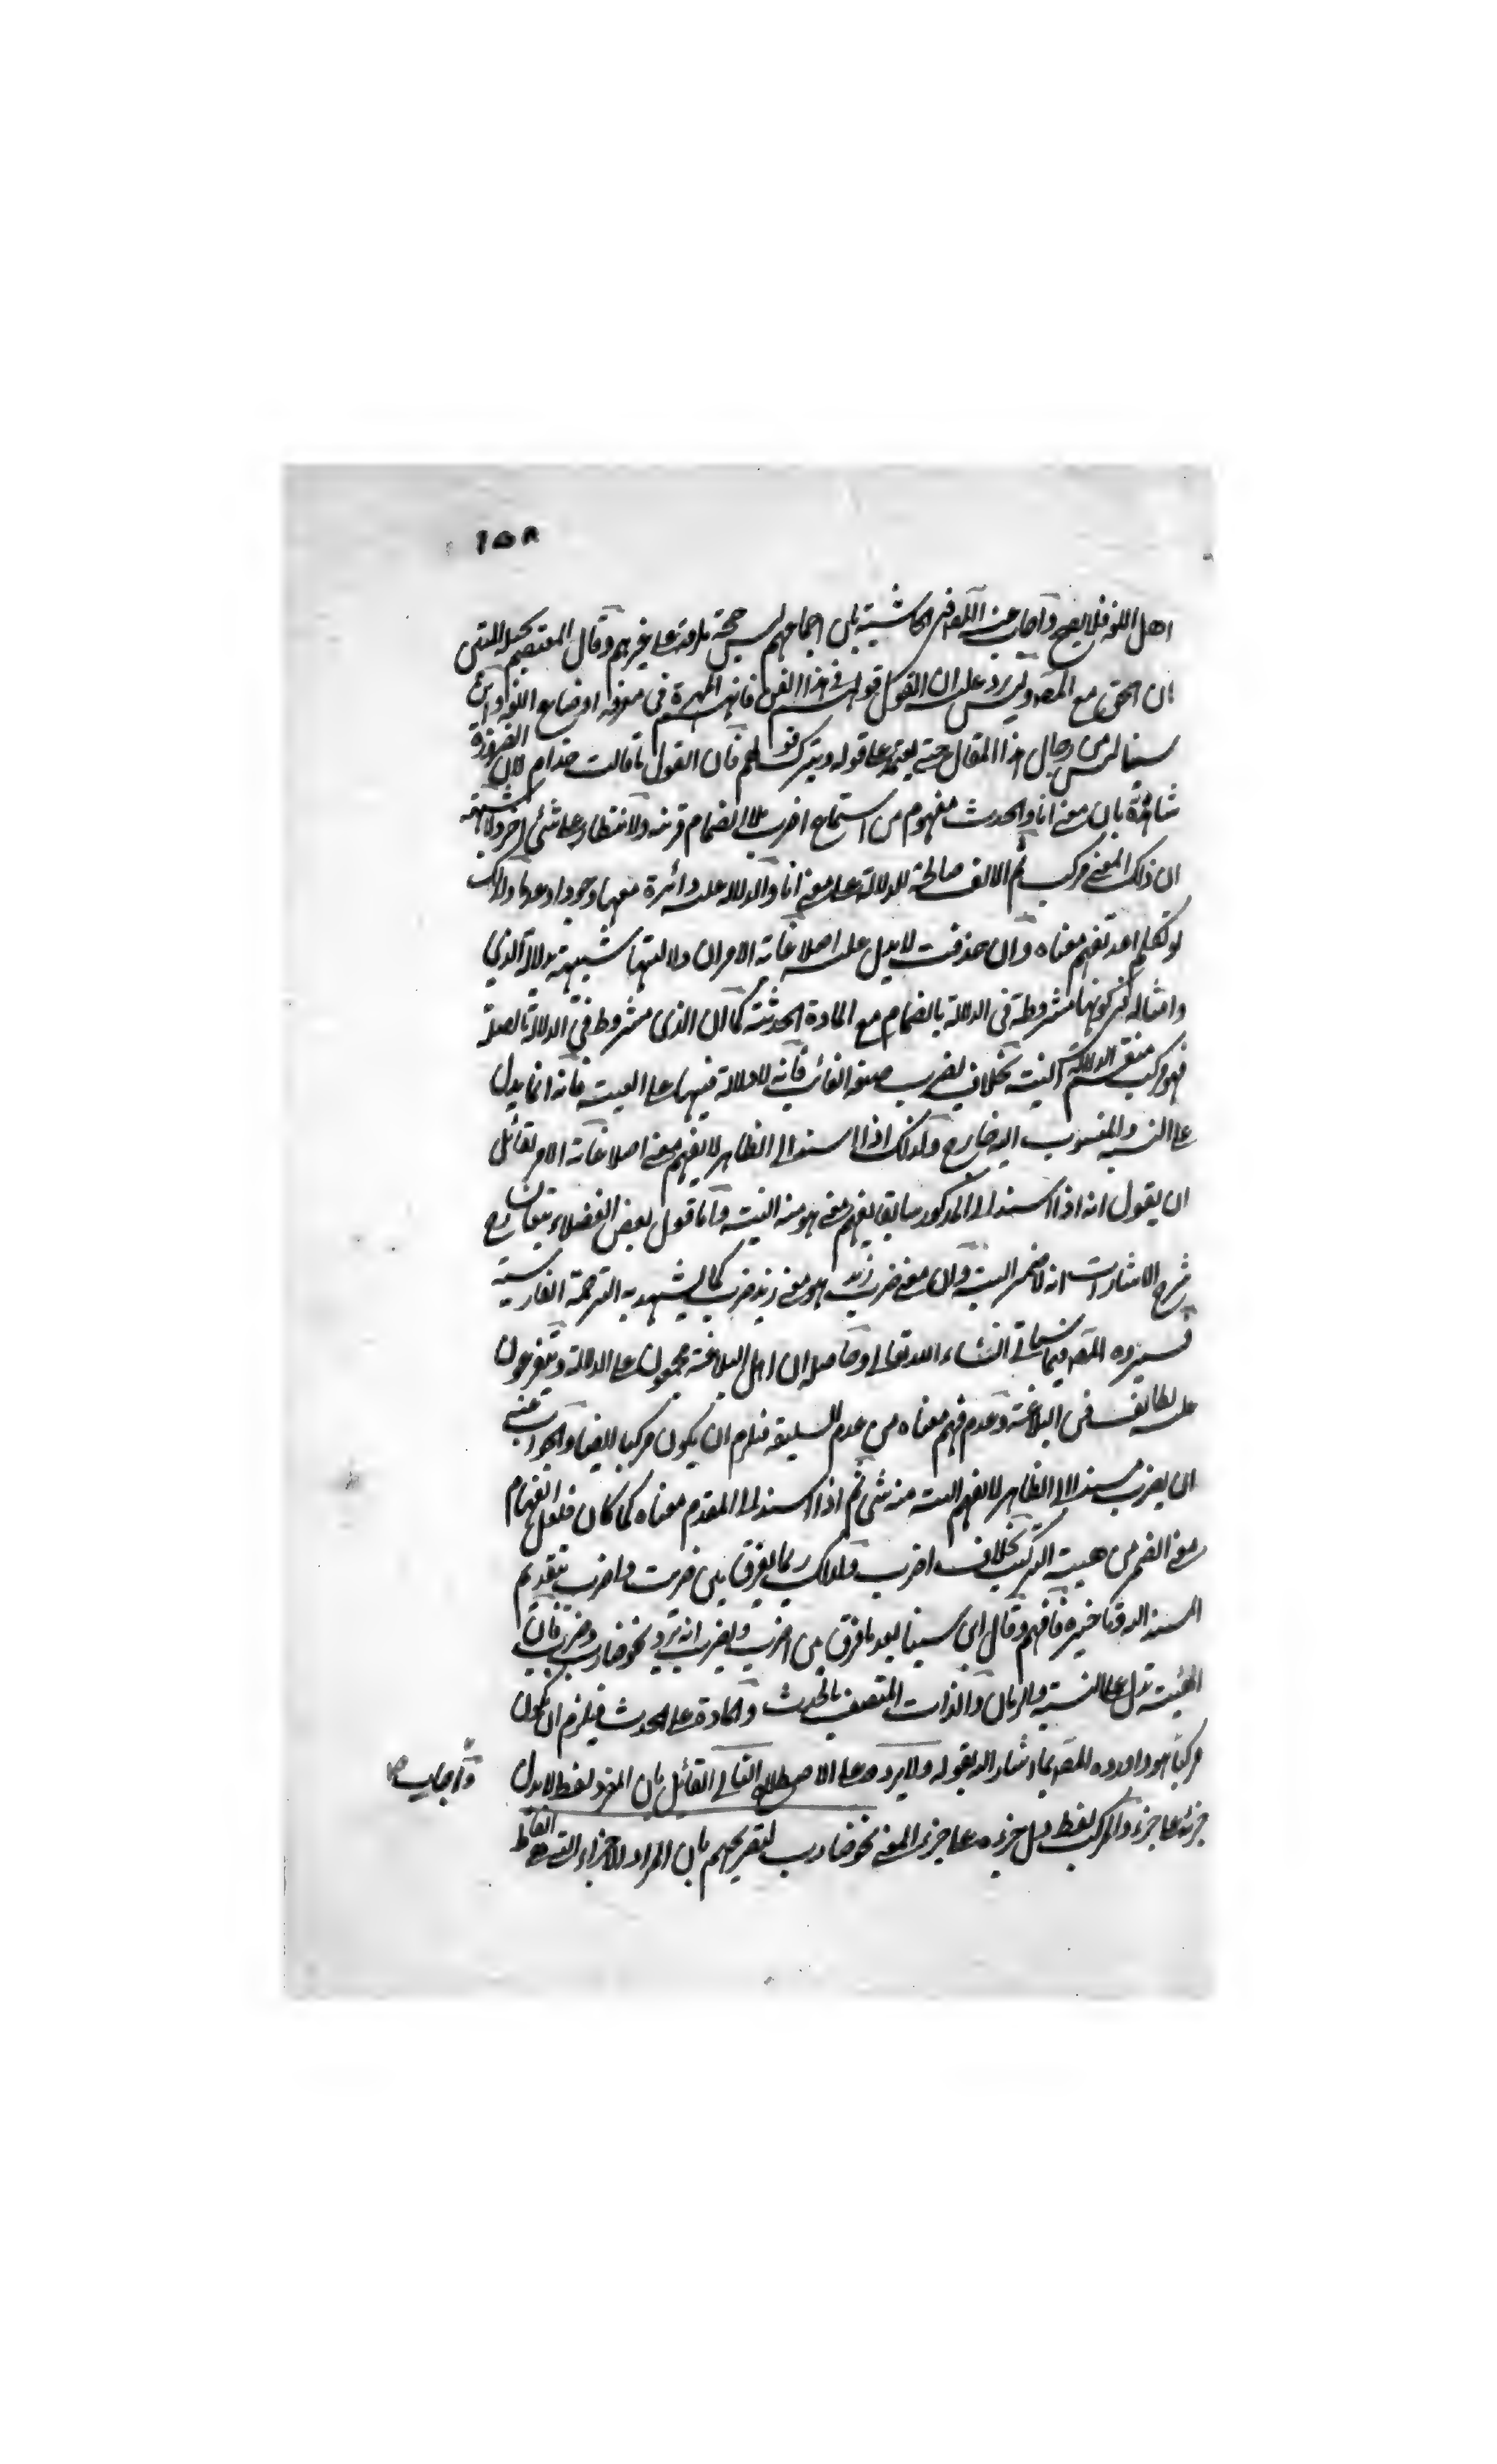 ١٥٨
اهل اللغة فلا يصح واجاب عنه المصـ في الحاشية بان اجماعهم ليس حجة ملزمة على غيرهم وقال المعتصم بحبله المتين
ان الحق مع المصـ وليس يرد عليه ان القول قولهم في هذا الفن فانهم المهرة في معرفة اوضاع اللغة وابن
سينا ليس من رجال هذا المقال حتى يعتمد على قوله ويترك قولهم فان القول ما قالت حذام لان الضرورة
شاهدة بان معنى انا والحدث مفهوم من استماع اضرب بلا انضمام قرينة ولا انتظار على شئ اخر ولا شبهة
ان ذلك المعنى مركب ثم الالف صالحة للدلالة على معنى انا والدلالة عليه دائرة معها وجودا وعدما ولذلك
لو تكلم احد تفهم معناه وان حذفت لا يدل عليه اصلا غاية الامر ان دلالتها شبيهة بدلالة الذي
وامثاله في كونها مشروطة في الدلالة بانضمام مع المادة الحدثية كما ان الذي مشروط في الدلالة بالصلة
فهو مركب منقسم الدلالة البتة بخلاف يضرب صيغة الغائب فانه لا دلالة فيها على الغيبة فانه انما يدل
على النسبة والمنسوب اليه خارج ولذلك اذا اسند الى الظاهر لا يفهم معنى اصلا غاية الامر لقائل
ان يقول انه اذا اسند الى المذكور سابقا يفهم معنى هو منه البتة واما قول بعض الفضلاء
شرح الاشارات انه لا ضمير البتة ولان معنى ضرب زيد هو معنى زيد ضرب كما يشهد به الترجمة الفارسية
فسيرده المصـ فيما سياتي انشاء الله تعالى وحاصله ان اهل البلاغة مجمعون على الدلالة ويتفرعون
عليه لطائف في البلاغة وعدم فهم معناه من عدم السليقة فيلزم ان يكون مركبا ايضا والجواب عنه
ان يضرب مسندا الى الظاهر لا يفهم البتة منه شئ ثم اذا اسند الى المقدم معناه كما كان فلعل انفهام
معنى الضمير من هيئة التركيب بخلاف اضرب ولذلك ربما يفرق بين ضربت واضرب بتقديم
المسند اليه وتاخيره فافهم وقال ابن سينا بعد ما فرق بين اضرب ويضرب انه يرد نحو ضارب وضرب فان
الهيئة تدل على النسبة والزمان والذات المتصف بالحدث والمادة على الحدث فيلزم ان يكون
مركبا هو واورده المصـ بما اشار اليه بقوله ولا يرد على الاصطلاح الثاني القائل بان المفرد لفظ لا يدل
جزئه على جزء والمركب لفظ يدل جزءه على جزء المعنى نحو ضارب لتصريحهم بان المراد الاجزاء التي هي الفاظ
واجاب